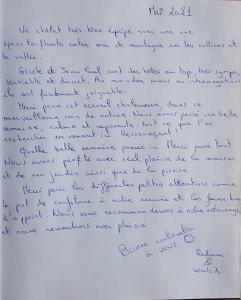 Mai 2021
Un chalet très bien équipé avec une vue
époustouflante entre mer et montagne sur les collines et
la vallée.
Gisèle et Jean Paul sont des hôtes au top, très sympa,
serviable et discret. Au moindre mais ou interrogation
ils sont facilement joignable.
Merci pour cet accueil chaleureux, dans ce
merveilleux coin de nature. Nous avons passé une belle
semaine, calme et reposante, tout ce que l'on
recherchez en venant ici. Ressourçant !
Quelle belle semaine passée ici. Merci pour tout.
Nous avons profité avec réel plaisir de la maison
et de son jardin ainsi que de la piscine.
Merci pour les différentes petites attentions comme
le pot de confiture à notre arrivée et les
d'appoint. Nous vous recommanderons à notre entourage
et nous reviendrons avec plaisir.
Bonne continuation
à vous
&
Walid